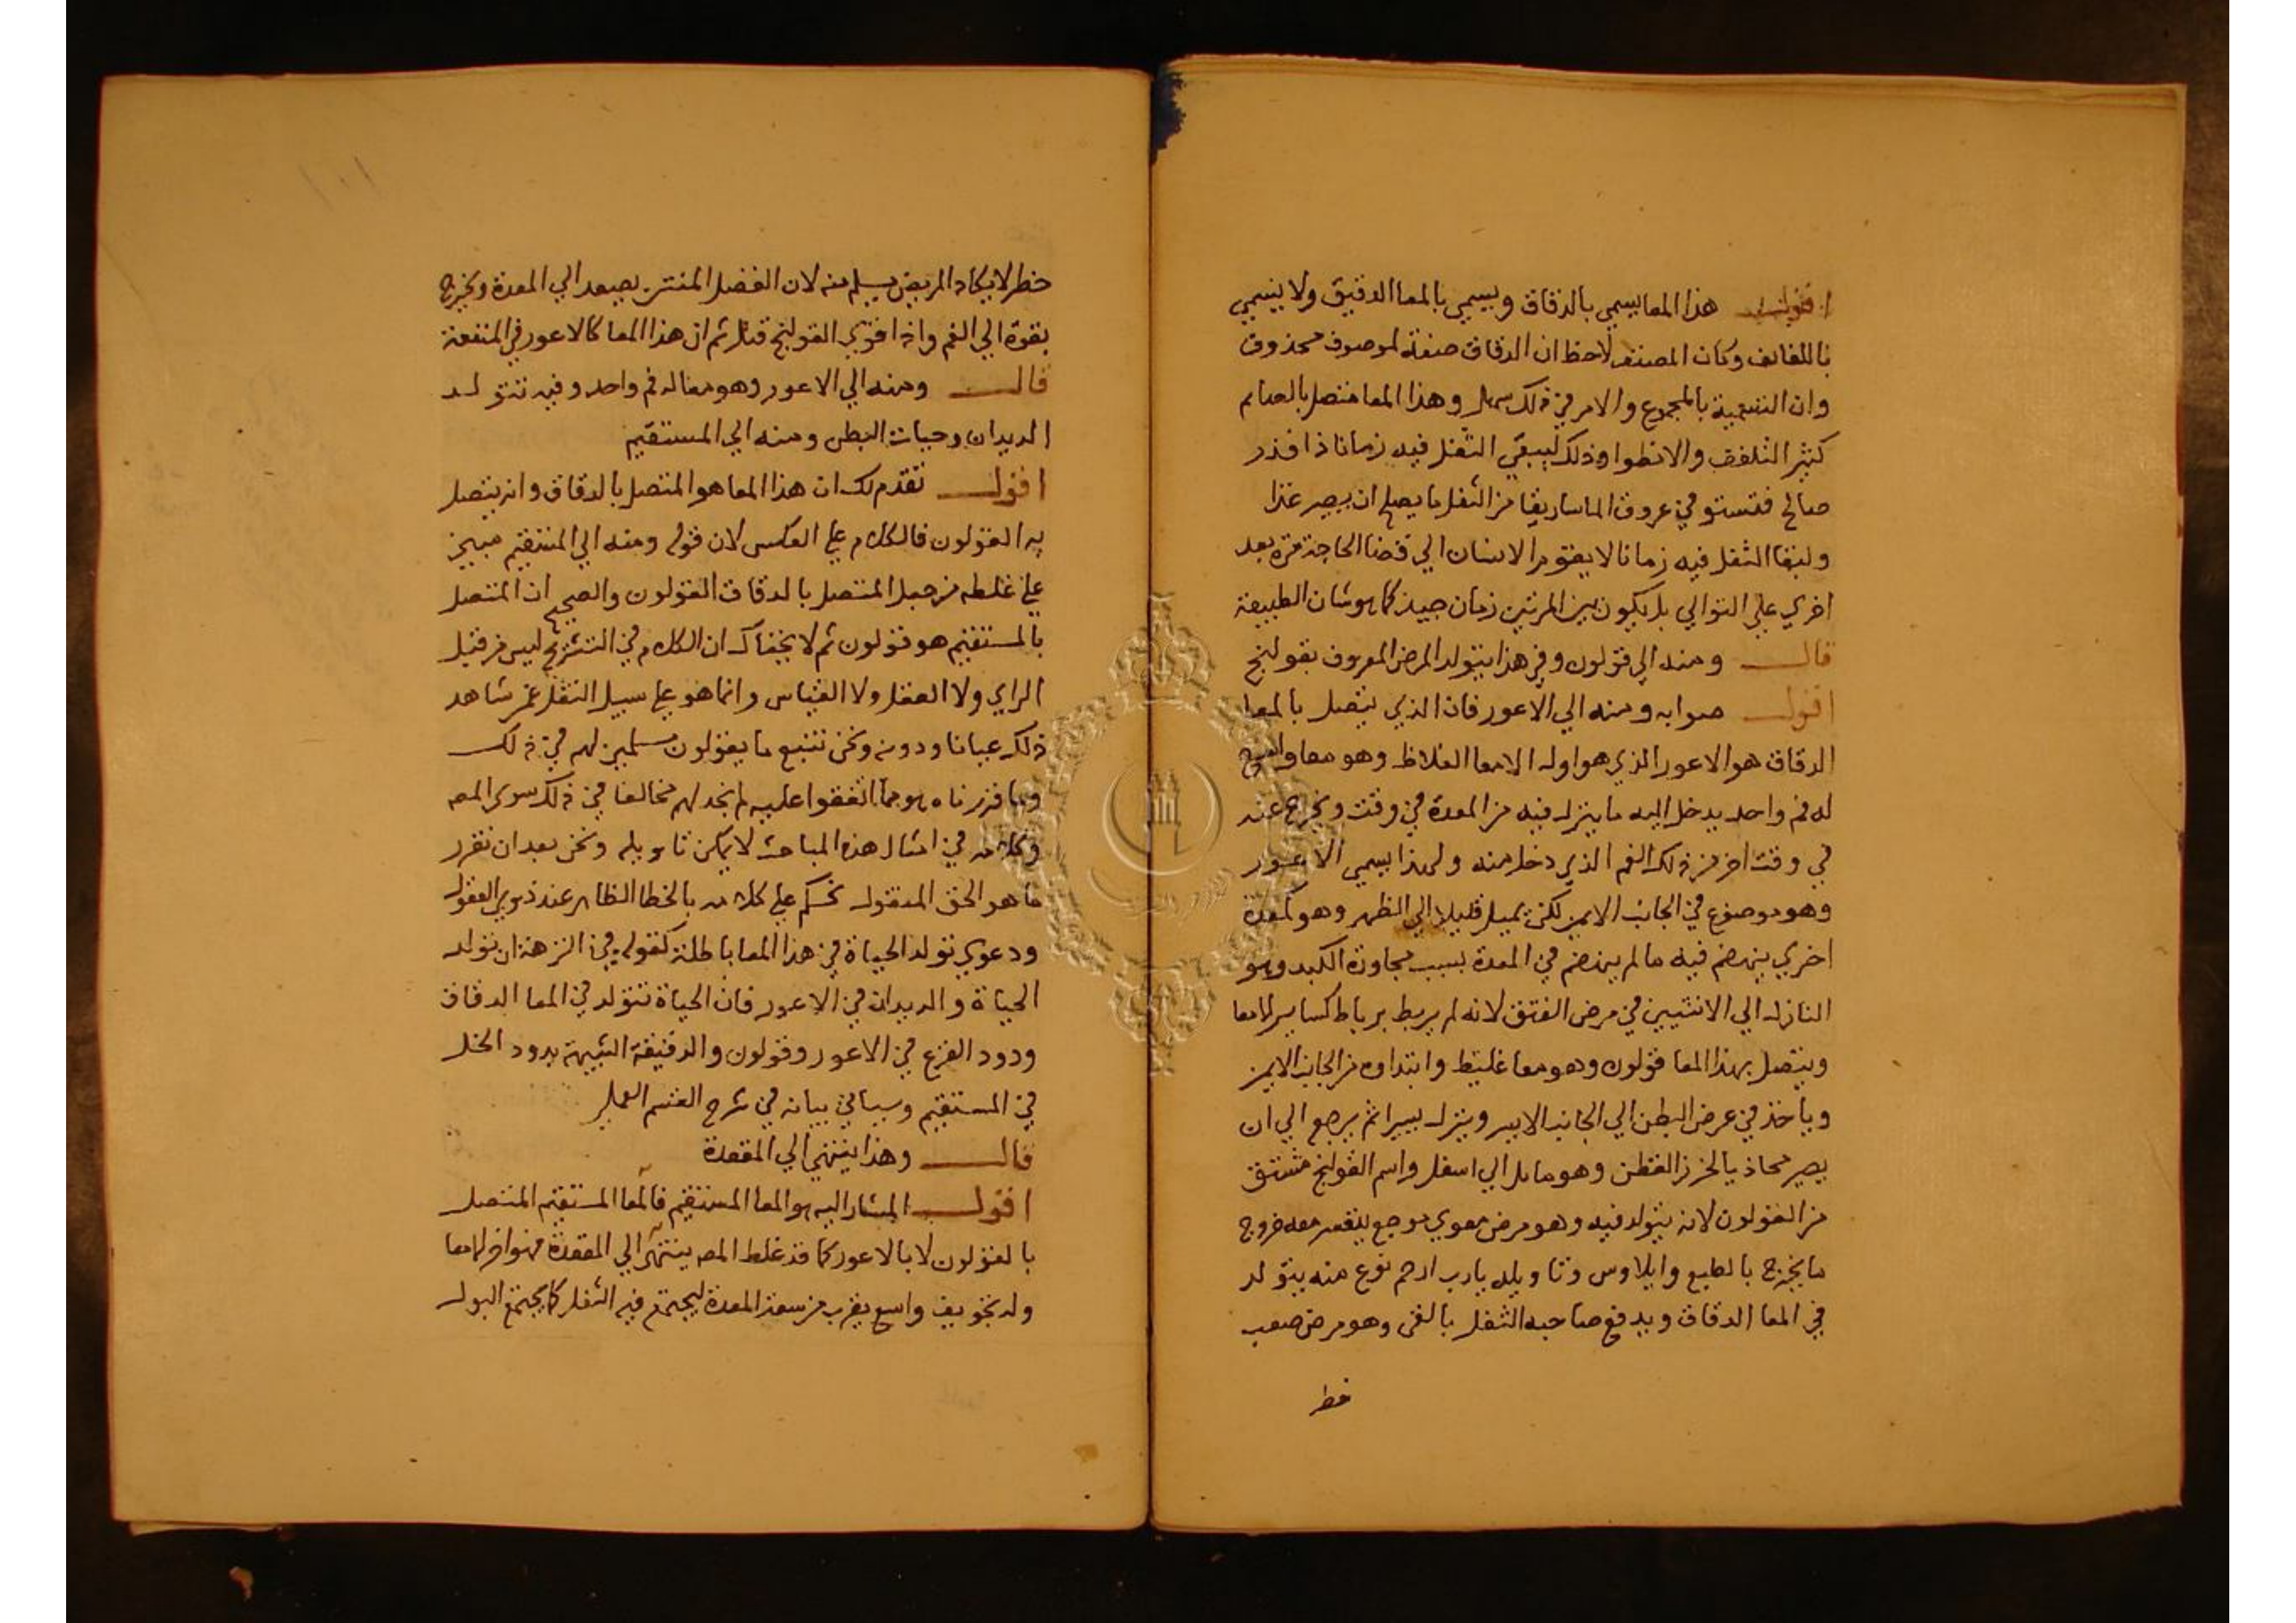 اقول هذا المعا يسمي بالدقاق ويسمي بالمعا الدقيق ولا يسمي
باللفايف وكان المصنف لاحظ ان الدقاق صفة لموصوف محذوف
وان التسمية بالمجموع والامر في ذلك سهل وهذا المعا متصل بالصايم
كثير التلفف والانطوا وذلك ليبقي الثفل فيه زمانا ذا قدر
صالح فتستو في عروق الماساريقا من الثفل ما يصلح ان يصير غذا
ولبقا الثفل فيه زمانا لا يقوم الانسان الي قضا الحاجة مرة بعد
اخري علي التوالي بل يكون بين المرتين زمان جيد كما هو شان الطبيعة
قال ومنه الي قولون وفي هذا يتولد المرض المعروف بقولنج
اقول صوابه ومنه الي الاعور فان الذي يتصل بالمعا
الدقاق هو الاعور الذي هو اول الامعا الغلاظ وهو معا واسع
له فم واحد يدخل اليه ما ينزل فيه من المعدة في وقت ويخرج عنه
في وقت اخر من ذلك الفم الذي دخل منه ولهذا يسمي الاعور
وهو موضوع في الجانب الايمن لكن يميل قليلا الي الظهر وهو كمعدة
اخري ينهضم فيه ما لم ينهضم في المعدة بسبب مجاورة الكبد وهو
النازل الي الانثيين في مرض الفتق لانه لم يربط برباط كساير الامعا
ويتصل بهذا المعا قولون وهو معا غليظ وابتداوه من الجانب الايمن
وياخذ في عرض البطن الي الجانب الايسر وينزل يسيرا ثم يرجع الي ان
يصير محاذيا لخرز القطن وهو مايل الي اسفل واسم القولنج مشتق
من القولون لانه يتولد فيه وهو مرض معوي موجع يتعسر معه خروج
ما يخرج بالطبع وايلاوس وتاويله يا رب ارحم نوع منه يتولد
في المعا الدقاق ويدفع صاحبه الثفل بالقي وهو مرض صعب
خطر
خطر لا يكاد المريض يسلم منه لان الفضل المنتن يصعد الي المعدة ويخرج
بقوة الي الفم واذا قوي القولنج قتل ثم ان هذا المعا كالاعور في المنفعة
قال ومنه الي الاعور وهو معا له فم واحد وفيه تتولد
الديدان وحيات البطن ومنه الي المستقيم
اقول تقدم لك ان هذا المعا هو المتصل بالدقاق وانه يتصل
به القولون فالكلام علي العكس لان قوله ومنه الي المستقيم مبين
علي غلطه من جعل المتصل بالدقاق القولون والصحيح ان المتصل
بالمستقيم هو قولون ثم لا يخفاك ان الكلام في التشريح ليس من قبيل
الراي ولا العقل ولا القياس وانما هو علي سبيل النقل عمن شاهد
ذلك عيانا ودونه ونحن نتبع ما يقولون مسلمين لهم في ذلك
وما قررناه هو مما اتفقوا عليه لم نجد لهم مخالفا في ذلك سوي المصـ
وكلامه في امثال هذه المباحث لا يمكن تاويله ونحن بعد ان نقرر
ما هو الحق المنقول نحكم علي كلامه بالخطا الظاهر عند ذوي العقول
ودعوي تولد الحياة في هذا المعا باطلة كقوله في النزهة ان تولد
الحياة والديدان في الاعور فان الحياة تتولد في المعا الدقاق
ودود القرع في الاعور وقولون والدقيقة الشبيهة بدود الخل
في المستقيم وسياتي بيانه في شرح القسم العملي
قال وهذا ينتهي الي المقعدة
اقول المشار اليه هو المعا المستقيم فالمعا المستقيم المتصل
بالقولون لا بالاعور كما قد غلط المصـ ينتهي الي المقعدة فهو اخر الامعا
وله تجويف واسع يقرب من سعة المعدة ليجتمع فيه الثفل كما يجتمع البول